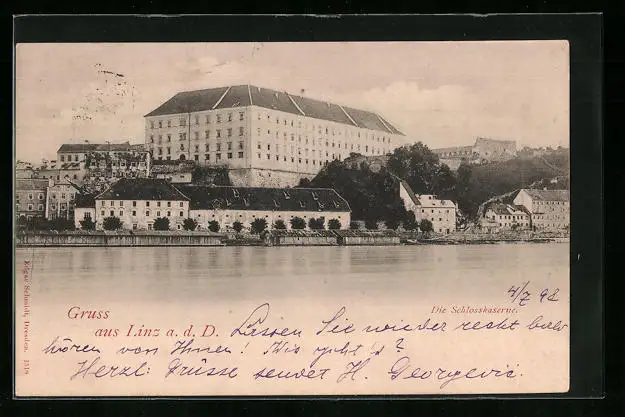 4/7 98
Gruss
aus Linz a. d. D.
Die Schlosskaserne.
Lassen Sie wieder recht bald
hören von Ihnen! Wie geht's?
Herzl. Grüsse H. Georgevic.
Edgar Schmidt, Dresden.